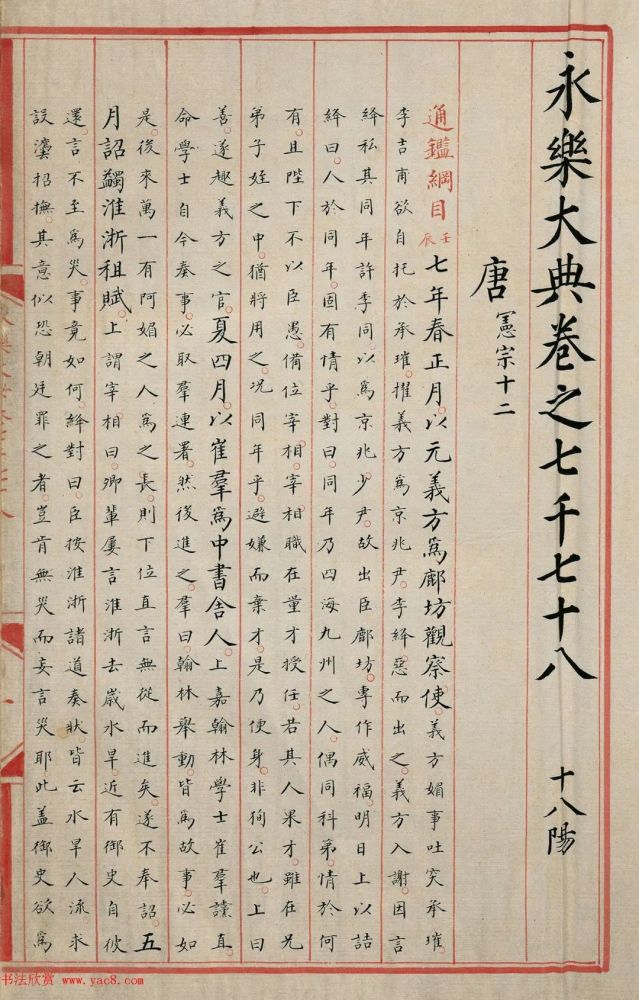 永樂大典卷之七千七十八 十八陽
唐 憲宗十二
通鑑綱目壬辰七年春正月。以元義方爲鄜坊觀察使。義方媚事吐突承璀。
李吉甫欲自托於承璀。擢義方爲京兆尹。李絳惡而出之。義方入謝。因言
絳私其同年許季同。以爲京兆少尹。故出臣鄜坊。專作威福。明日上以詰
絳曰。人於同年。固有情乎。對曰。同年乃四海九州之人。偶同科第。情於何
有。且陛下不以臣愚。備位宰相。宰相職在量才授任。若其人果才。雖在兄
弟子姪之中。猶將用之。况同年乎。避嫌而棄才。是乃便身。非狥公也。上曰
善。遂趣義方之官。夏四月。以崔羣爲中書舍人。上嘉翰林學士崔羣讜直。
命學士自今奏事。必取羣連署。然後進之。羣曰。翰林舉動。皆爲故事。必如
是。後來萬一有阿媚之人爲之長。則下位直言無從而進矣。遂不奉詔。五
月詔蠲淮浙租賦。上謂宰相曰。卿輩屢言淮浙去歲水旱。近有御史自彼
還。言不至爲災。事竟如何。絳對曰。臣按淮浙諸道奏狀。皆云水旱人流。求
設灋招撫。其意似恐朝廷罪之者。豈肯無災而妄言災耶。此蓋御史欲爲
书法欣赏 www.yac8.com